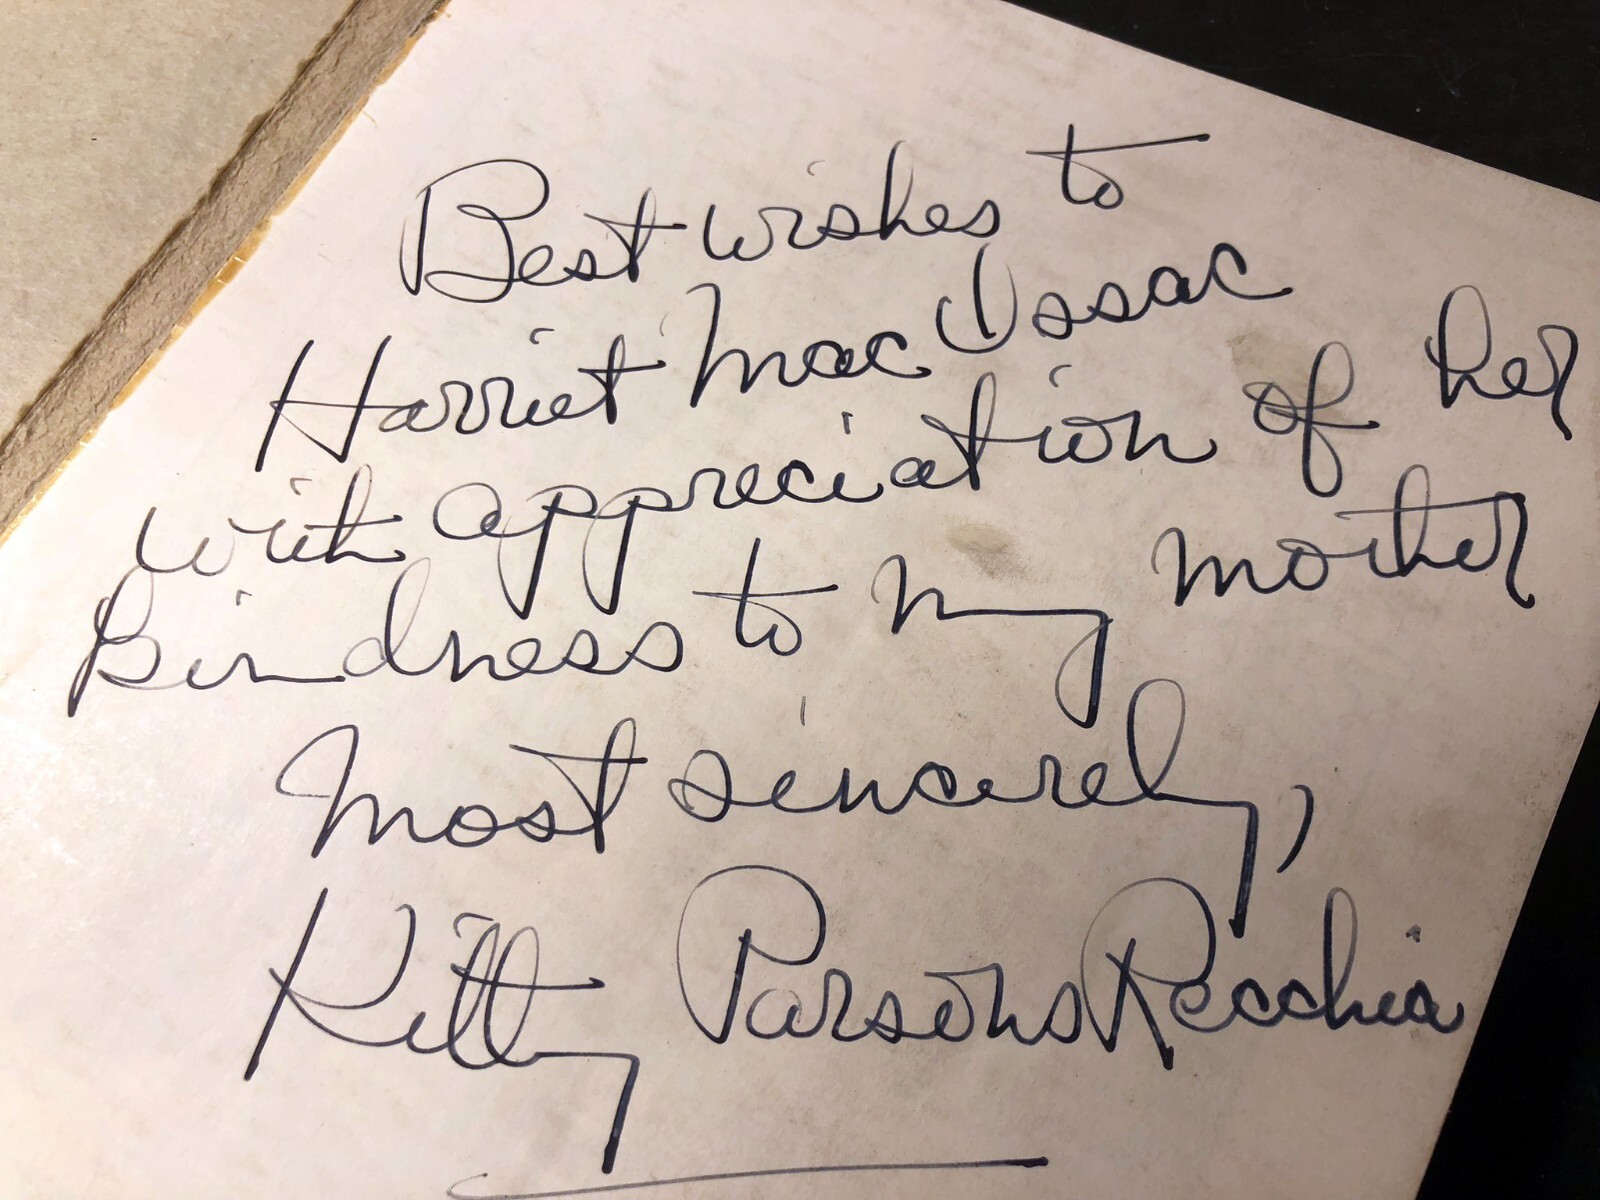 Best wishes to
Harriet Mac Issac
with appreciation of her
kindness to my mother
Most sincerely,
Kitty Parsons Recchia